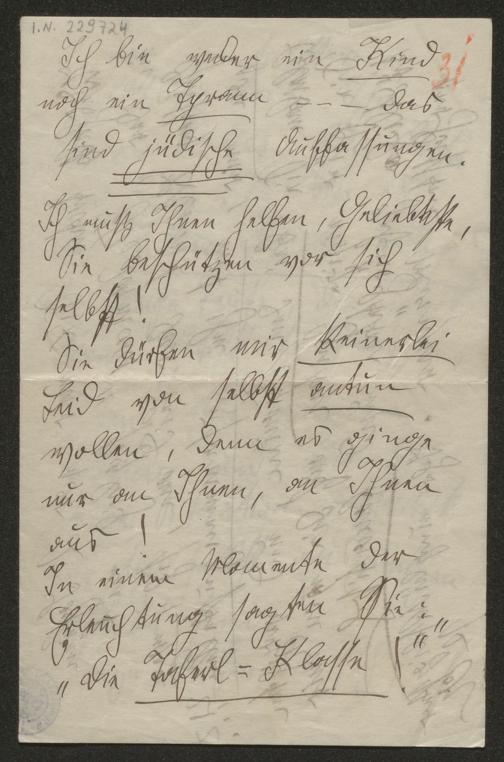 I.N. 229724
31
Ich bin weder ein Kind
noch ein Tyrann - - - das
sind jüdische Auffassungen.
Ich muß Ihnen helfen, Geliebteste,
Sie beschützen vor sich
selbst!
Sie dürfen mir keinerlei
Leid von selbst antun
wollen, denn es ginge
nur an Ihnen, an Ihnen
aus!
In einem Momente der
Erleuchtung sagten Sie:
"Die Taferl=Klasse!""